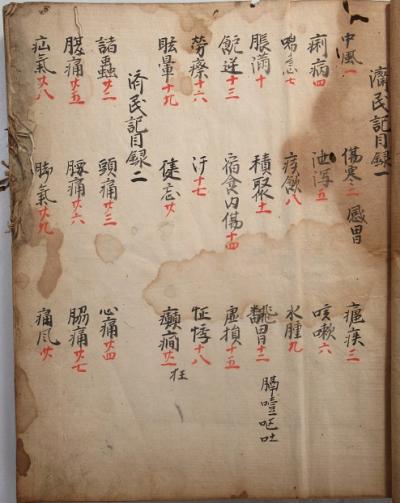 濟民記目録一
中風一 傷寒二 感冒 瘧疾三
痢病四 泄瀉五 咳嗽六
喘急七 痰飲八 水腫九
脹滿十 積聚十一 翻胃十二 膈噎嘔吐
逆十三 宿食内傷十四 虚損十五
勞瘵十六 汗十七 怔悸十八
眩暈十九 健忘廿 癲癇廿一 狂
済民記目録二
諸蟲廿二 頭痛廿三 心痛廿四
腹痛廿五 腰痛廿六 脇痛廿七
疝氣廿八 脚氣廿九 痛風卅